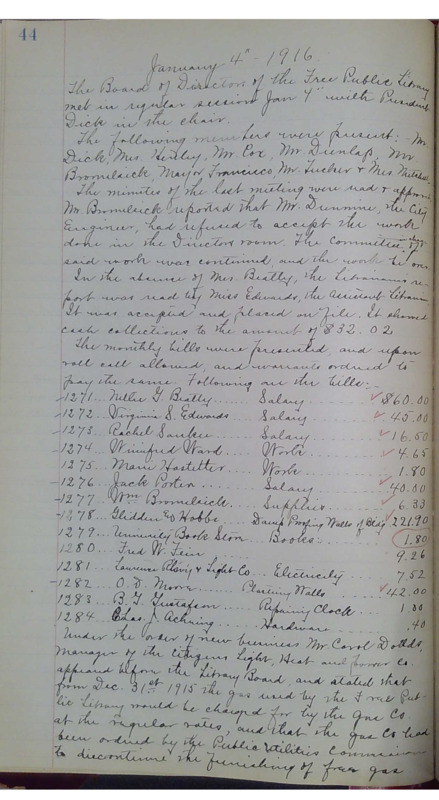 44
January 4" 1916
The Board of Directors of the Free Public Library
met in regular session Jan 4" with President
Dick in the chair.
The following members were present:- Mr
Dick, Mrs. Henley, Mr Cox, Mr Dunlap, Mr
Bromelsick, Major Francisco, Mr. Tucker & Mrs Mitchell.
The minutes of the last meeting were read &
Mr. Bromelsick reported that Mr Dunmire, the City
Engineer, had refused to accept the work
done in the Directors room. The Committee
said work was continued, and the work
In the absence of Mrs Beatty, the Librarians re-
port was read by Miss Edwards, the assistant Librarian
It was accepted and placed on file. It showed
cash collections to the amount of $32.02
The monthly bills were presented, and upon
roll call allowed, and warrants ordered to
pay the same. Following are the bills:-
1271 Nellie G Beatly Salary $60.00
1272 Virginia S. Edwards Salary 45.00
1273 Rachel Salary 16.50
1274 Winifred Ward Work 4.65
1275 Marie Hostetter Work 1.80
1276 Jack Porter Salary 40.00
1277 Wm Bromelsick Supplies 6.33
1278 Glidden & Hobbs Damp Proofing Walls of Bldg 221.90
1279 University Book Store Books 1.80
1280 Fred W. 9.26
1281 Lawrence Ry & Light Co. Electricity 7.52
1282 O. D. Moore Plastering Walls 42.00
1283 B. F. Gustafson Repairing Clock 1.00
1284 Chas. J. Achning Hardware .40
Under the order of new business Mr Carol Dodds,
manager of the Citizens Light, Heat and Power Co.
appeared before the Library Board, and stated that
from Dec. 31st 1915 the gas used by the Free Pub-
lic Library would be charged for by the Gas Co
at the regular rates, and that the gas Co had
been ordered by the Public Utilities Commission
to discontinue the furnishing of free gas